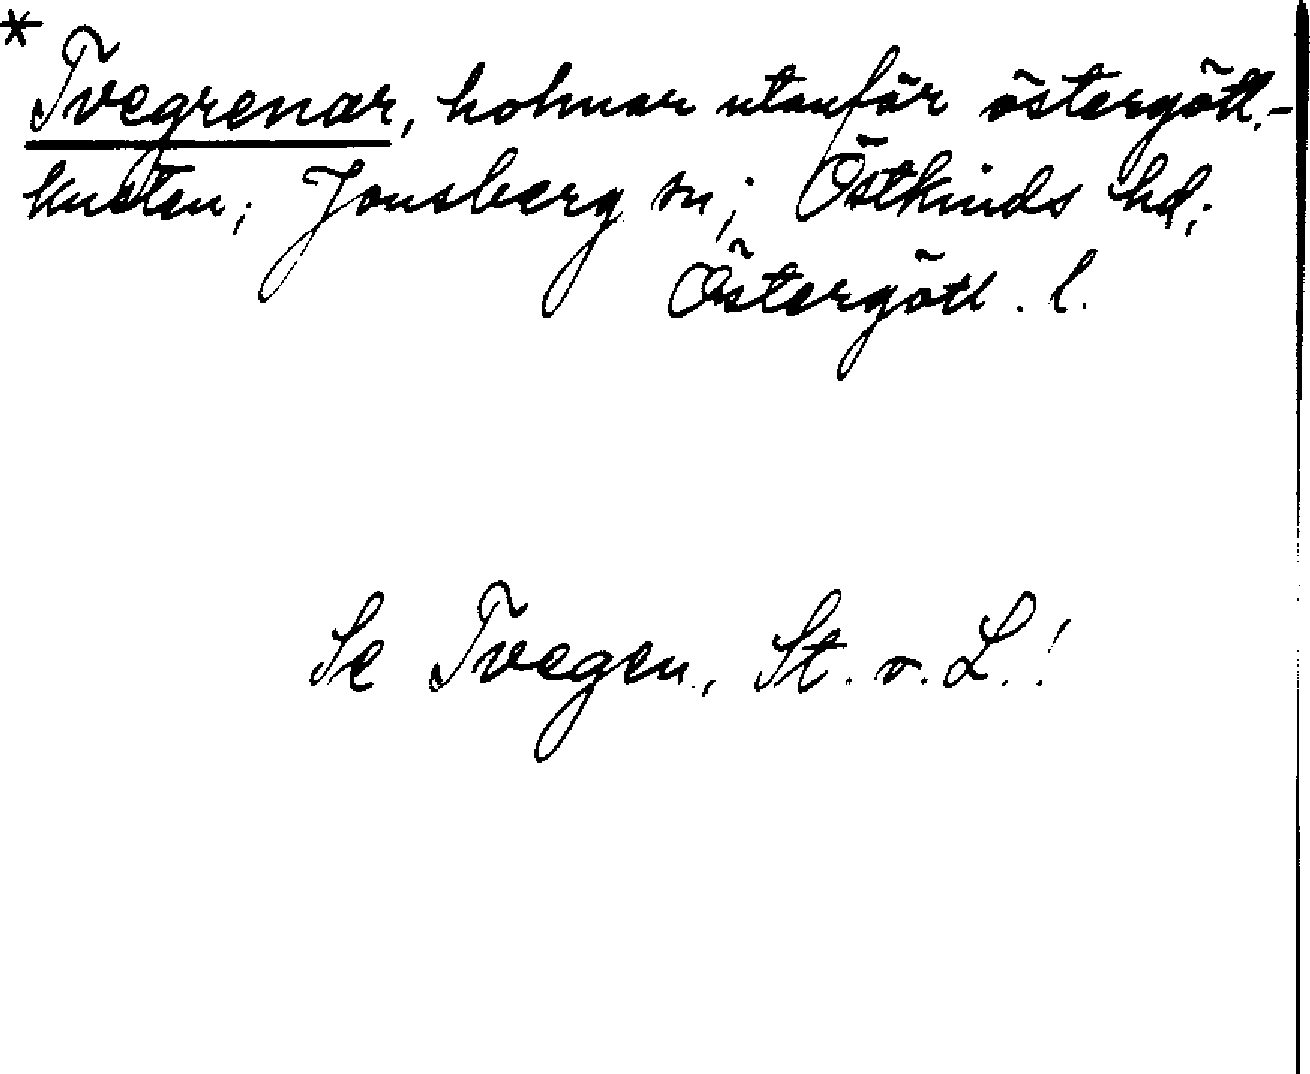 * Tvegrenar, holmar utanför östergötl.-
kusten; Jonsberg sn; Östkinds hd;
Östergötl. l.
Se Tvegen., St. v. L.!